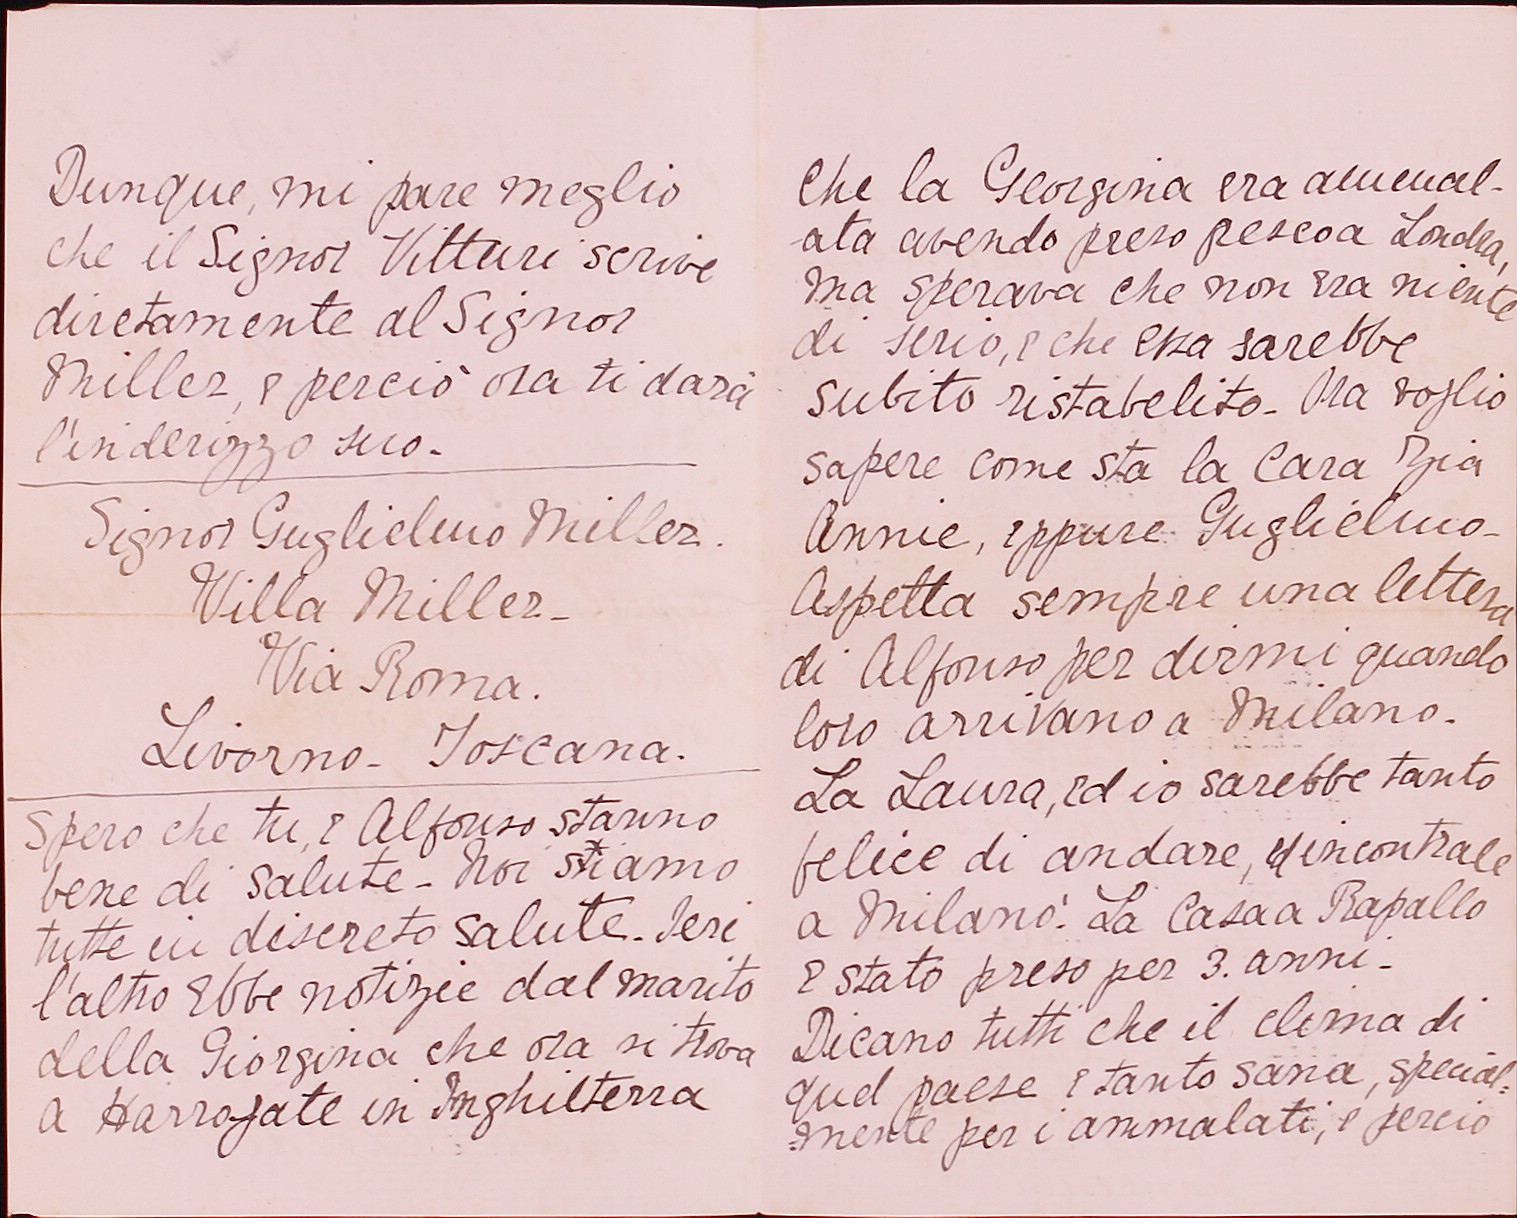 Dunque, mi pare meglio
che il Signor Vitturi scrive
diretamente al Signor
Miller, e perciò ora ti darà
l'inderizzo suo.
Signor Guglielmo Miller.
Villa Miller-
Via Roma.
Livorno- Toscana.
Spero che tu, e Alfonso stanno
bene di salute- Noi stiamo
tutte in discreto salute- Ieri
l'altro ebbe notizie dal marito
della Giorgina che ora si trova
a Harrogate in Inghilterra
che la Georgina era ammal-
-ata avendo preso fresco a Londra,
ma sperava che non era niente
di serio, e che essa sarebbe
subito ristabelito- Ma voglio
sapere come sta la cara Zia
Annie, eppure Guglielmo-
Aspetta sempre una lettera
di Alfonso per dirmi quando
loro arrivano a Milano-
La Laura, ed io sarebbe tanto
felice di andare, incontrale
a Milano. La Casa a Rapallo
e stato preso per 3. anni-
Dicano tutti che il clima di
quel paese e tanto sana, special=
=mente per i ammalati, e percio